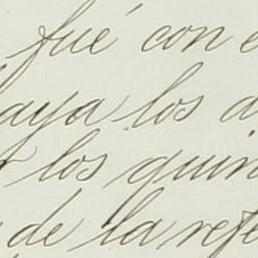 fué con e
aya los d
los quin
de la refe